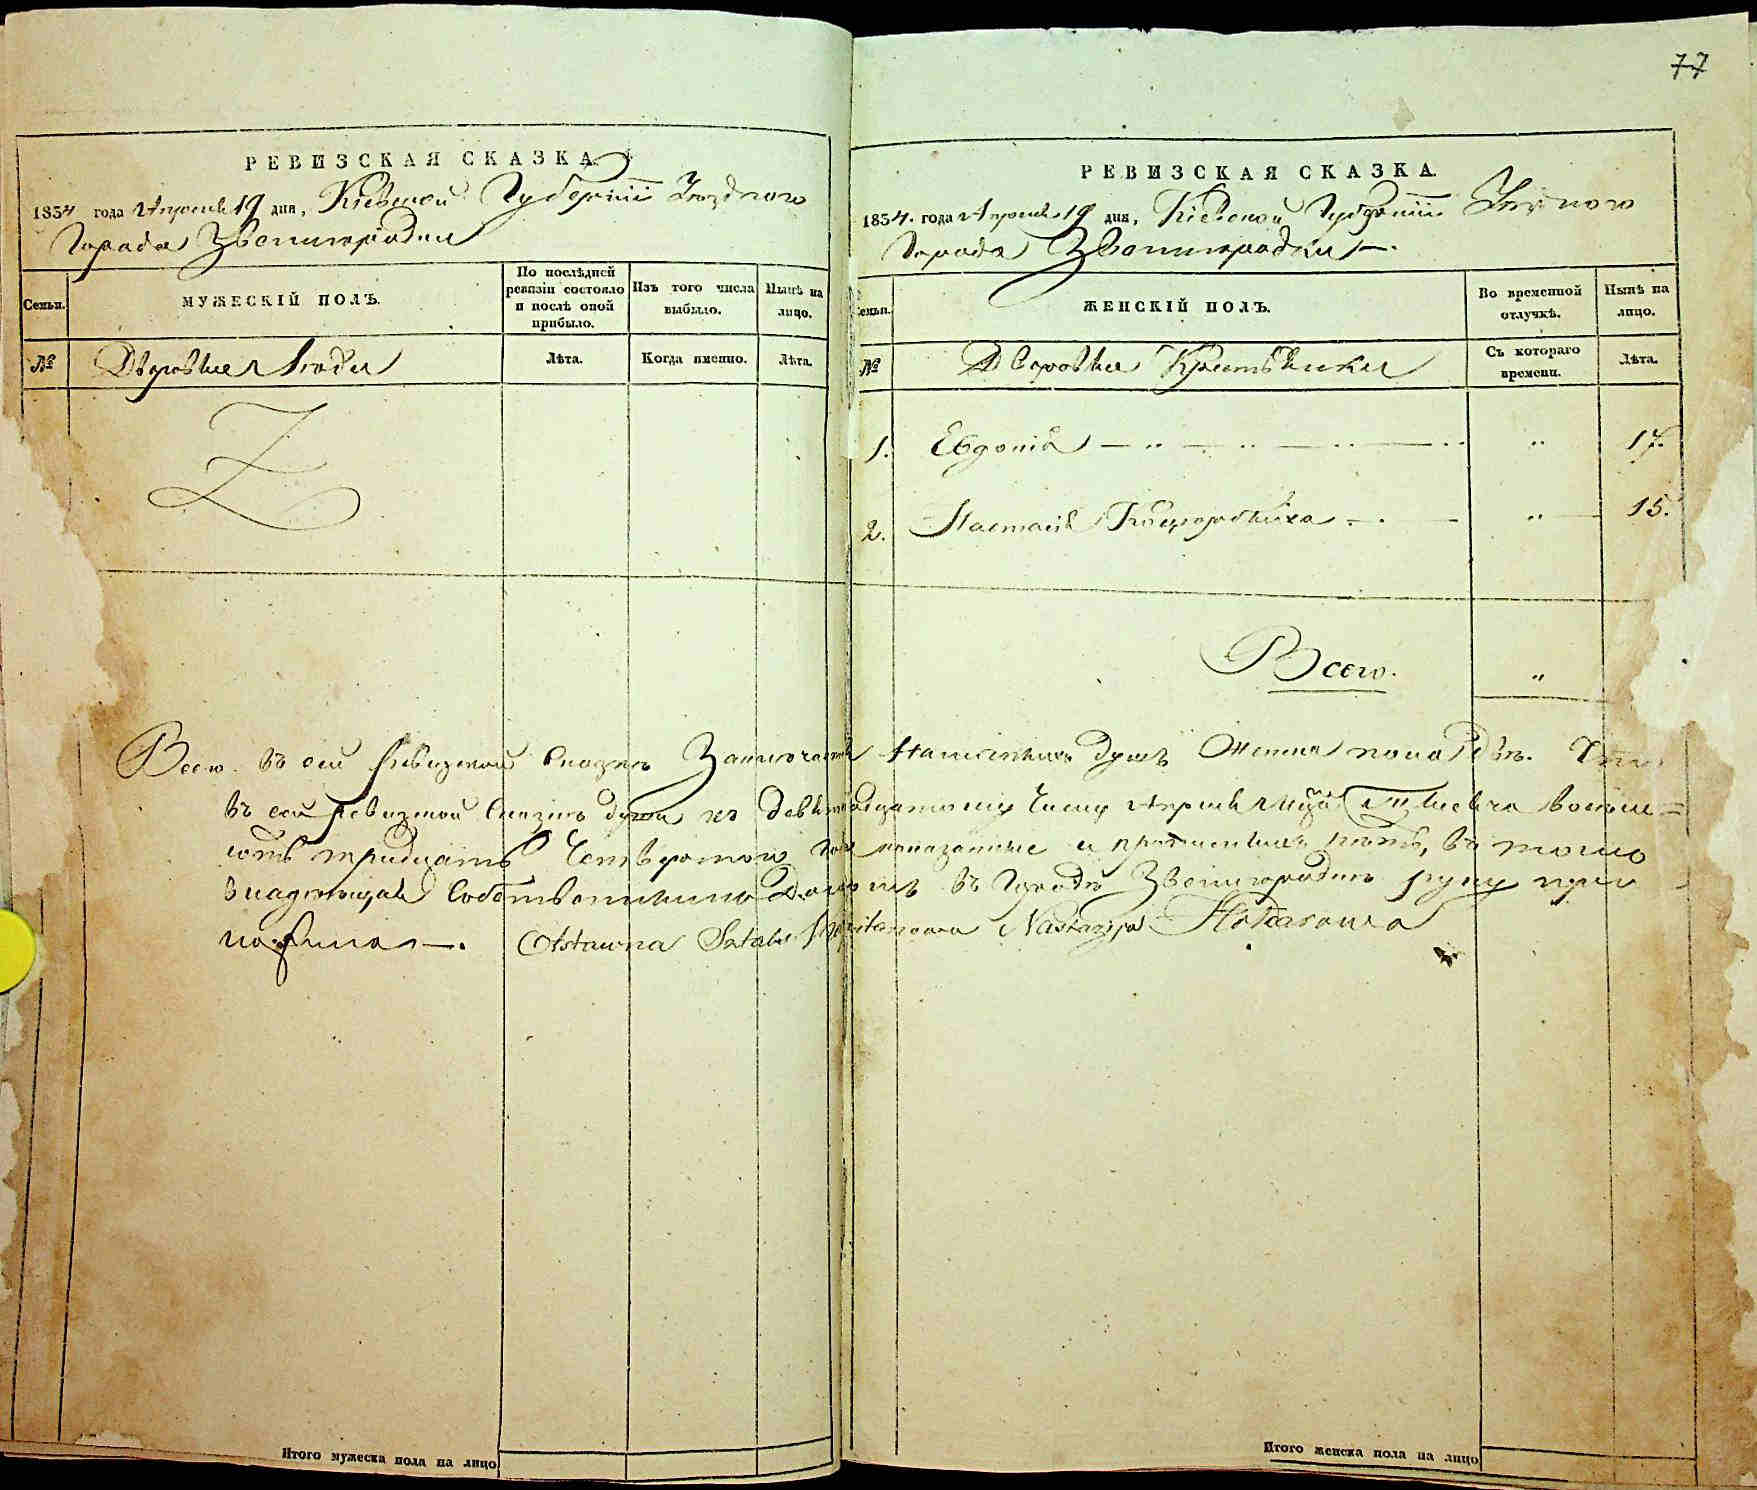 77
РЕВИЗСКАЯ СКАЗКА.
1834 года Апреля 19 дня, Кіевской Губерніи Уѣзднаго
Города Звенигородки
Семьи.
МУЖЕСКІЙ ПОЛЪ.
По послѣдней ревизіи состояло и послѣ оной прибыло.
Изъ того числа выбыло.
Нынѣ на лицо.
№
Дворовые Люди
Лѣта.
Когда именно.
Лѣта.
РЕВИЗСКАЯ СКАЗКА.
1834. года Апреля 19 дня, Кіевской Губерніи Уѣзднаго
Города Звенигородки —.
Семьи.
ЖЕНСКІЙ ПОЛЪ.
Во временной отлучкѣ.
Нынѣ на лицо.
№
Дворовые
Съ котораго времени.
Лѣта.
1. Евдокія 17.
2. Настасія 15.
Всего.
Всего въ сей ревизской сказкѣ наличныхъ душъ женска пола двѣ. Что
въ сей ревизской сказкѣ души къ девятнадцатому числу Апреля тысяча восем=
сотъ тридцать четвертого года показанные и прописныхъ нѣтъ, въ томъ
владеющая собственнымъ домомъ въ Городѣ Звенигородкѣ руку при=
ложила —. Otstawna Sztabs Kapitanowa Nastazya
Итого мужеска пола на лицо
Итого женска пола на лицо